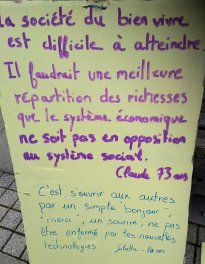 La société du bien vivre
est difficile à atteindre.
Il faudrait une meilleure
répartition des richesses
que le système économique
ne soit pas en opposition
au système social.
Claude 73 ans
C'est s'ouvrir aux autres
par un simple "bonjour",
"merci", un sourire, ne pas
être enfermé par les nouvelles
technologies.